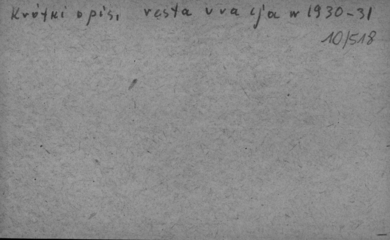 Krótki opis, restauracja w 1930-31
10/518